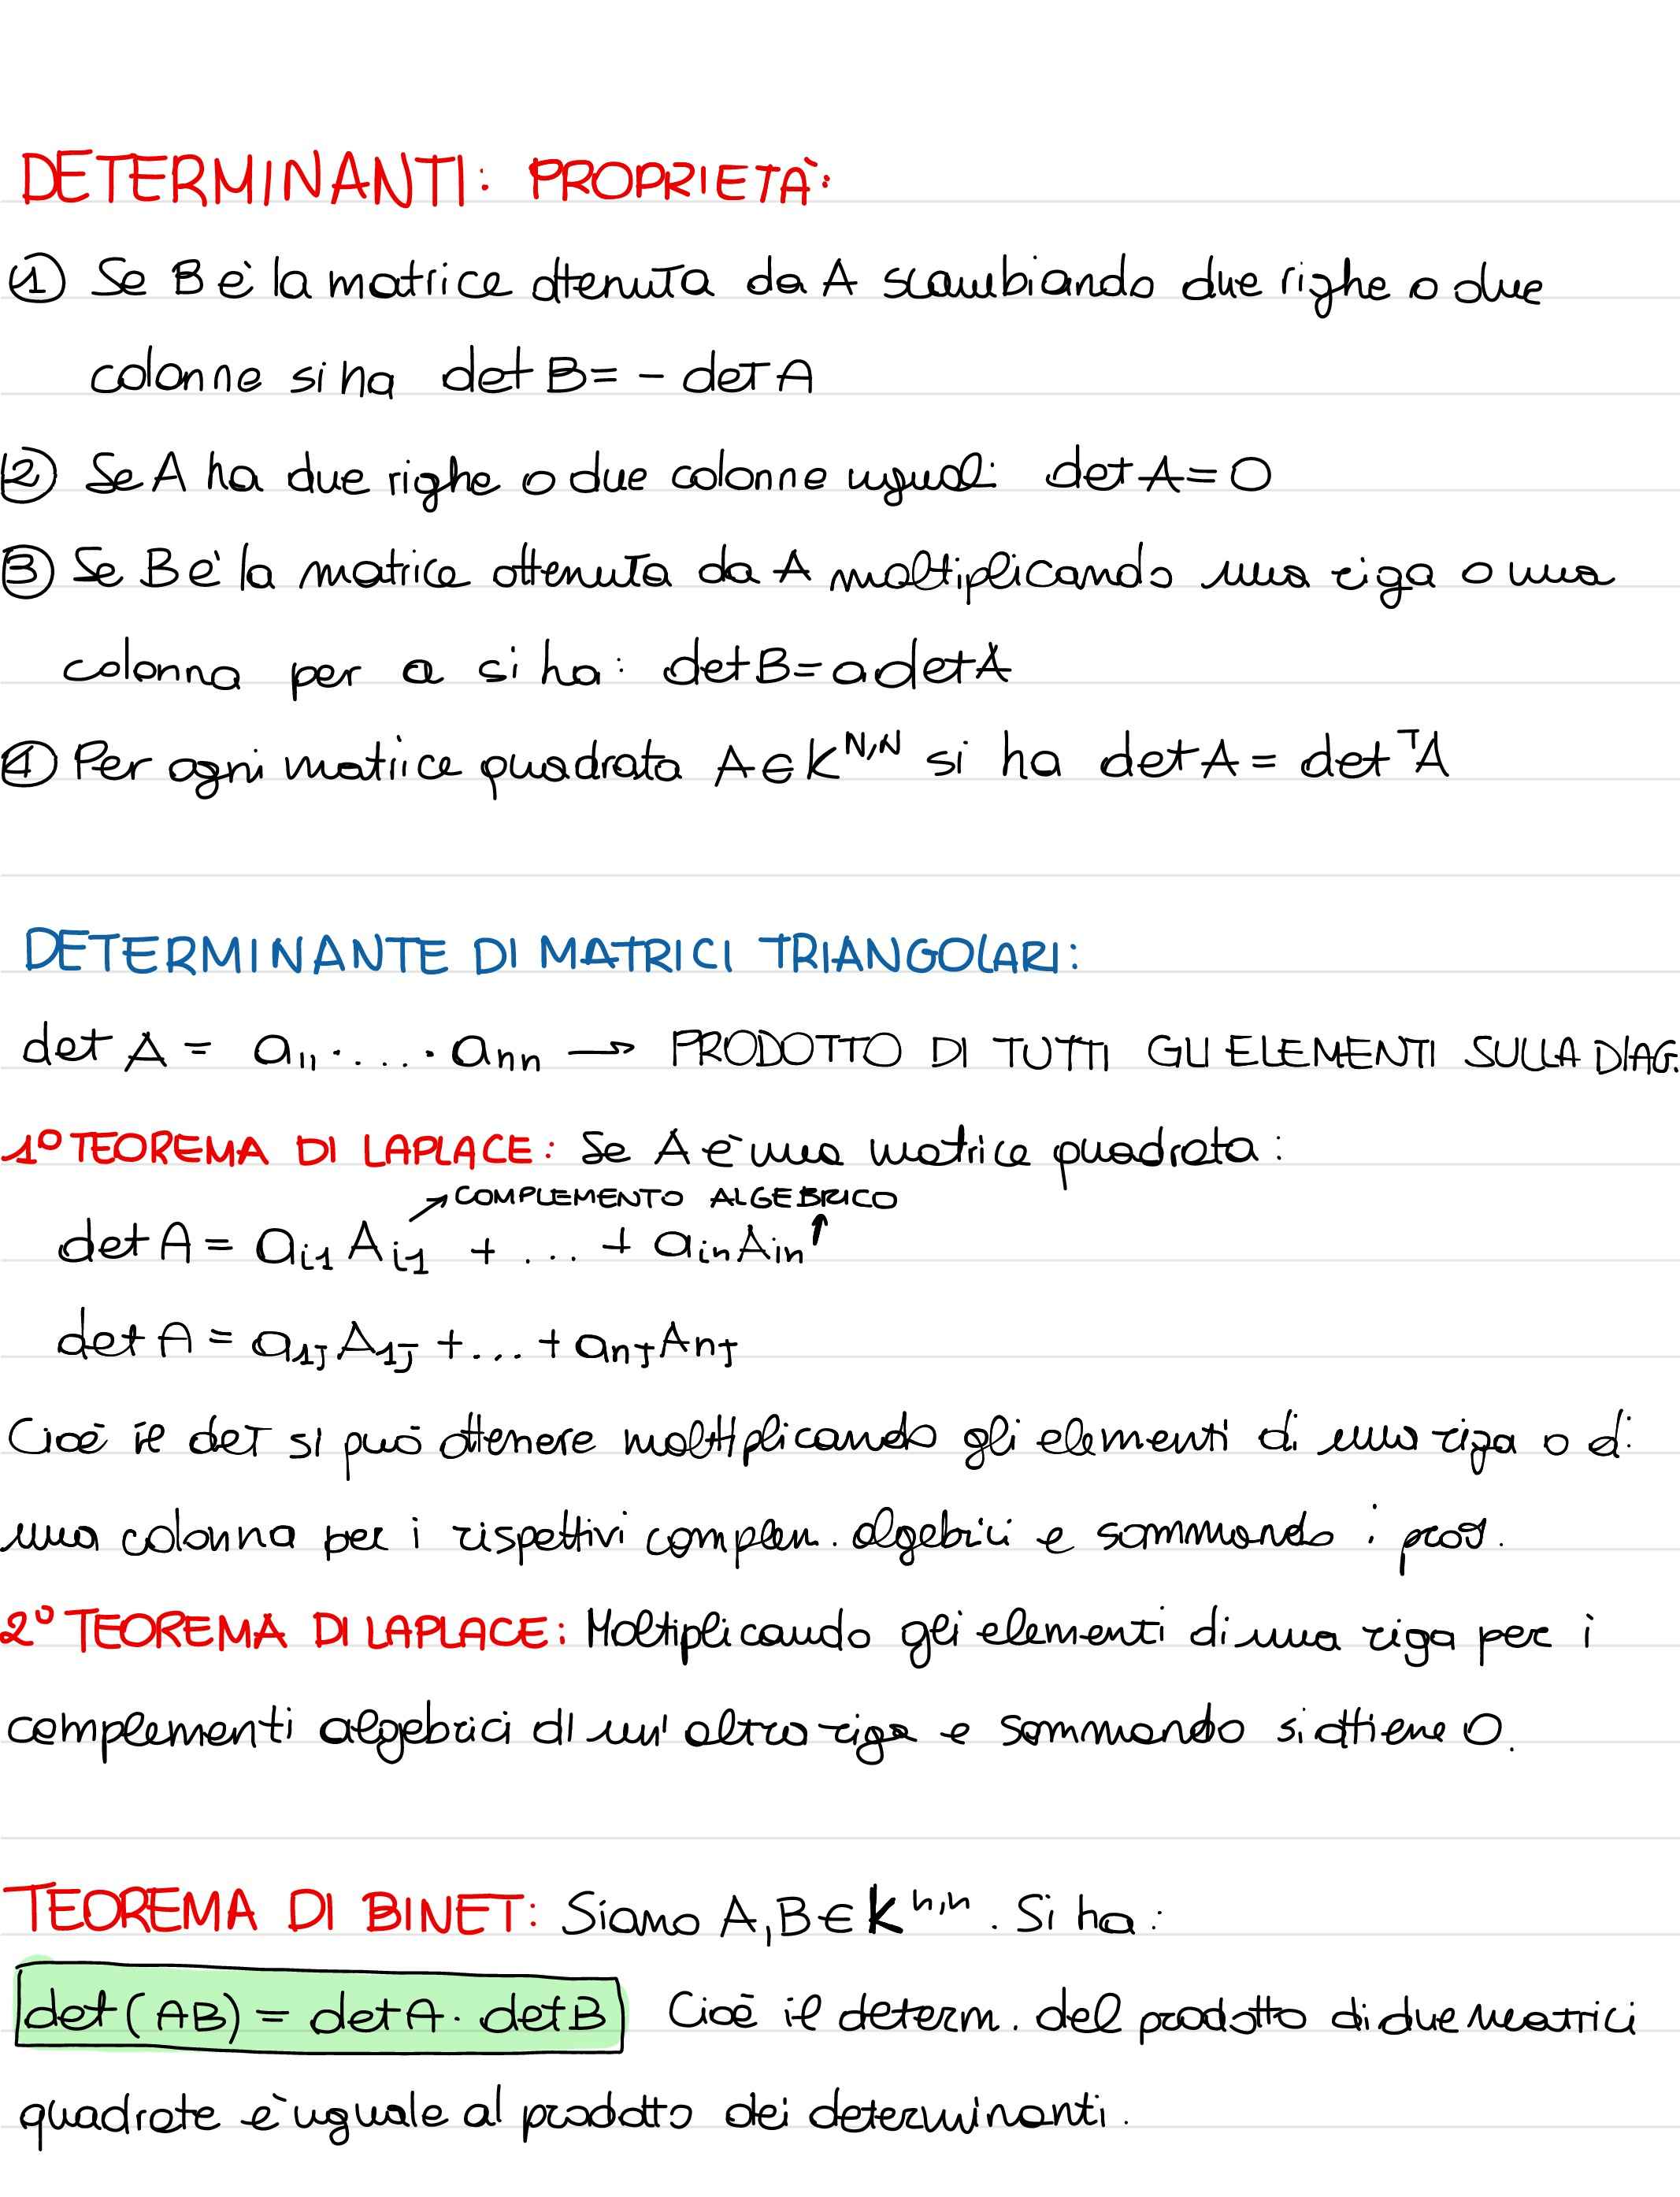 DETERMINANTI: PROPRIETÀ:
① Se B è la matrice ottenuta da A scambiando due righe o due
colonne si ha det B = - det A
② Se A ha due righe o due colonne uguali: det A = 0
③ Se B è la matrice ottenuta da A moltiplicando una riga o una
colonna per a si ha: det B = a det A
④ Per ogni matrice quadrata A ∈ K^N,N si ha det A = det ᵀA
DETERMINANTE DI MATRICI TRIANGOLARI:
det A = a₁₁ · ... · aₙₙ → PRODOTTO DI TUTTI GLI ELEMENTI SULLA DIAG.
1° TEOREMA DI LAPLACE: Se A è una matrice quadrata:
↗ COMPLEMENTO ALGEBRICO
det A = a_i1 A_i1 + ... + a_in A_in ↑
det A = a_1J A_1J + ... + a_nJ A_nJ
Cioè il det si può ottenere moltiplicando gli elementi di una riga o di
una colonna per i rispettivi complem. algebrici e sommando i prod.
2° TEOREMA DI LAPLACE: Moltiplicando gli elementi di una riga per i
complementi algebrici di un'altra riga e sommando si ottiene 0.
TEOREMA DI BINET: Siano A, B ∈ K^n,n. Si ha:
det (AB) = det A · det B Cioè il determ. del prodotto di due matrici
quadrate è uguale al prodotto dei determinanti.